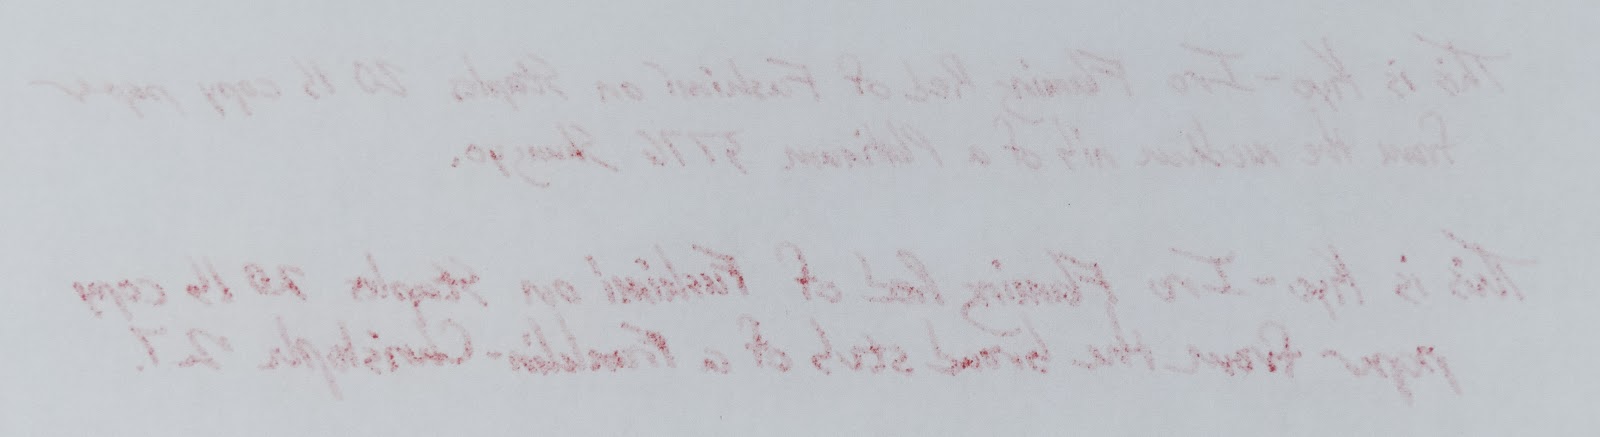 This is Kyo-Iro Flaming Red of Fushimi on Staples 20 lb copy paper
from the medium nib of a Platinum 3776 Shungyo.
This is Kyo-Iro Flaming Red of Fushimi on Staples 20 lb copy
paper from the broad stub of a Franklin-Christoph 27.